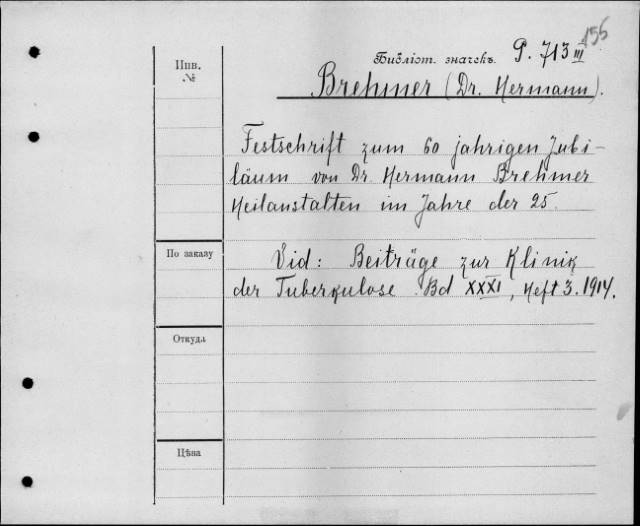 155
Инв.
№
Библіот. значекъ. P. 713 III
Brehmer (Dr. Hermann).
Festschrift zum 60 jahrigen Jubi-
läum von Dr. Hermann Brehmer
Heilanstalten im Jahre der 25.
По заказу
Vid: Beiträge zur Klinik
der Tuberkulose. Bd XXXI, Heft 3. 1914.
Откуда
Цѣна